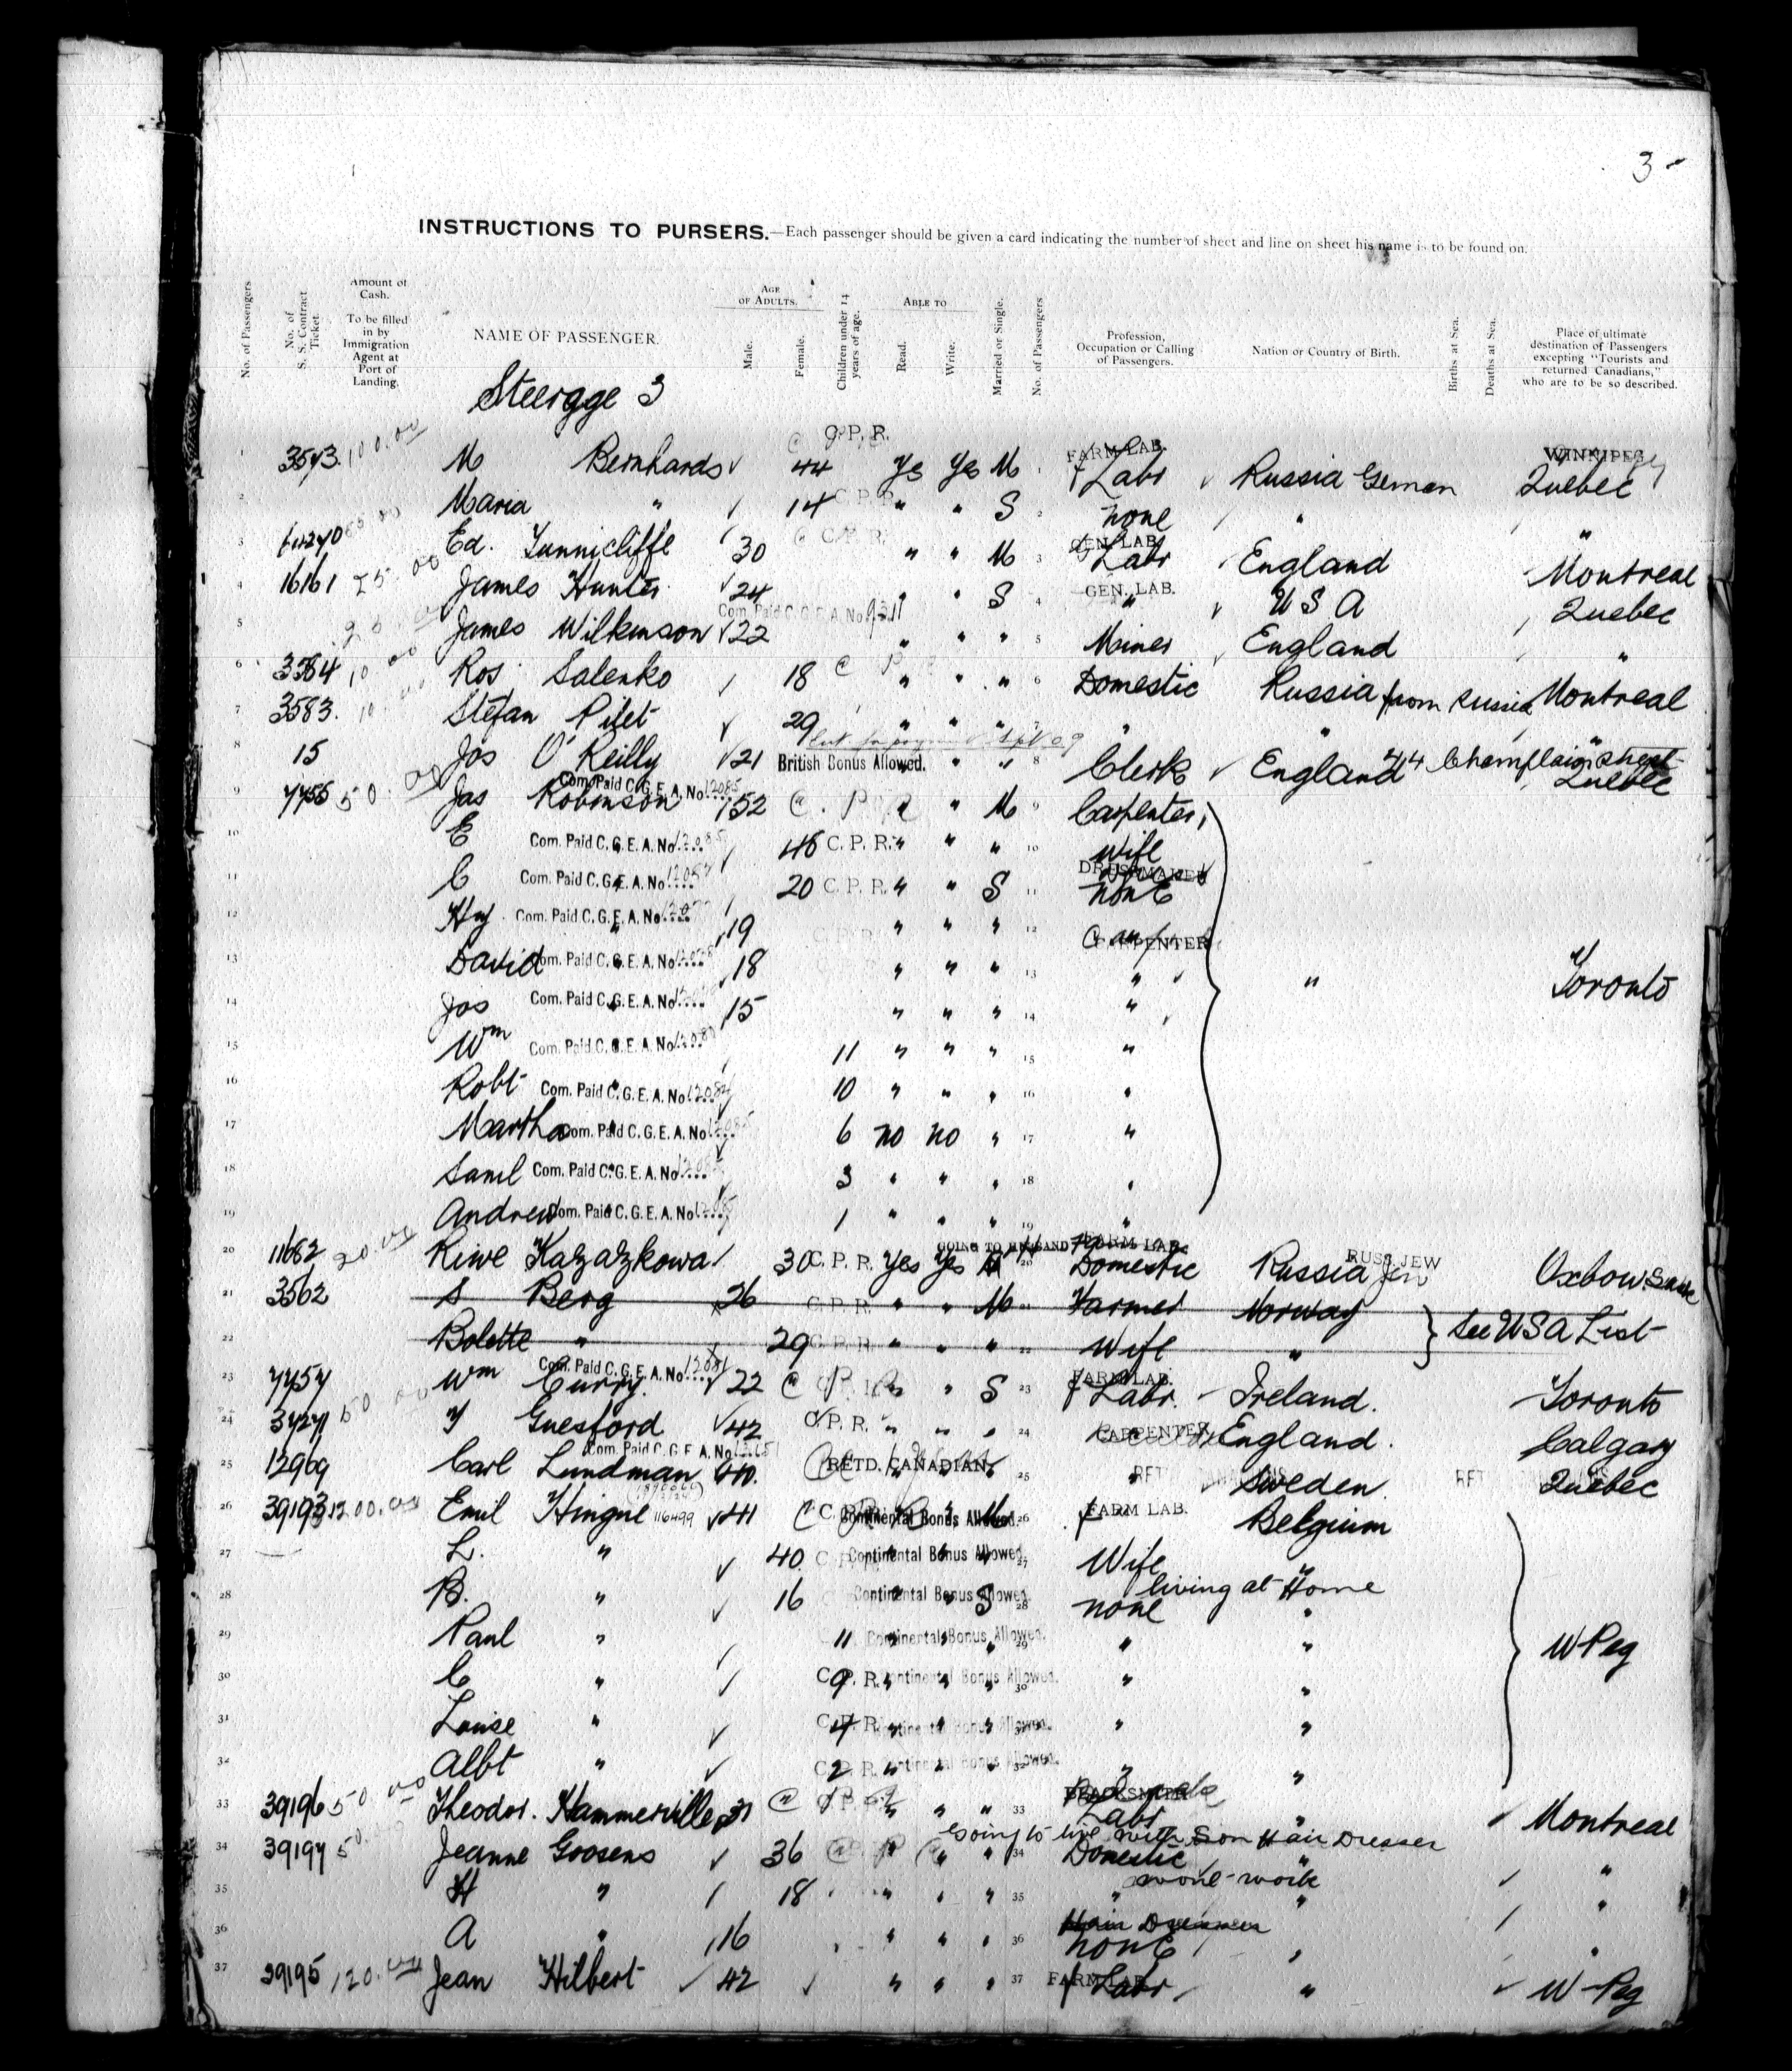 3-
INSTRUCTIONS TO PURSERS.—Each passenger should be given a card indicating the number of sheet and line on sheet his name is to be found on.
No. of Passengers
No. of S. S. Contract Ticket.
Amount of Cash. To be filled in by Immigration Agent at Port of Landing.
NAME OF PASSENGER.
AGE OF ADULTS.
Male.
Female.
Children under 14 years of age.
ABLE TO
Read.
Write.
Married or Single.
No. of Passengers
Profession, Occupation or Calling of Passengers.
Nation or Country of Birth.
Births at Sea.
Deaths at Sea.
Place of ultimate destination of Passengers excepting "Tourists and returned Canadians," who are to be so described.
Steergge 3
C. P. R. FARM LAB. WINNIPEG
1 3573 100.00 M Bernhards 44 Yes Yes M 1 Labr Russia German Quebec
2 Maria " 14 C. P. R. " " S 2 none " "
3 Ed. Tunnicliffe 30 " " M 3 GEN. LAB. Labr England Montreal
4 16161 25.00 James Hunter 24 " " S 4 GEN. LAB. " U S A Quebec
Com. Paid C. G. E. A. No 9311
5 James Wilkinson 22 " " " 5 Miner England "
6 3584 10.00 Ros Salenko 18 " " " 6 Domestic Russia from Russia Montreal
7 3583. 10.00 Stefan Pilet 29 " " " 7 " " "
8 15 Jos O'Reilly 21 British Bonus Allowed. " " 8 Clerk England 44 Champlain Street Quebec
Com. Paid C. G. E. A. No 12085
9 7455 50.00 Jas Robinson 52 " " M 9 Carpenter
10 E " Com. Paid C. G. E. A. No 46 C. P. R. " " " 10 wife
11 C " Com. Paid C. G. E. A. No 20 C. P. R. " " S 11 none
12 Hy " Com. Paid C. G. E. A. No 19 " " " 12 CARPENTER
13 David " Com. Paid C. G. E. A. No 18 " " " 13 " " Toronto
14 Jos " Com. Paid C. G. E. A. No 15 " " " 14 "
15 Wm " Com. Paid C. G. E. A. No 11 " " " 15 "
16 Robt " Com. Paid C. G. E. A. No 10 " " " 16 "
17 Martha " Com. Paid C. G. E. A. No 6 no no " 17 "
18 Saml " Com. Paid C. G. E. A. No 3 " " " 18 "
19 Andrew " Com. Paid C. G. E. A. No 1 " " " 19 "
GOING TO HUSBAND FARM LAB. RUSS JEW
20 11682 20.00 Riwe Kazazkowa 30 C. P. R. Yes Yes 20 Domestic Russia Oxbow Sask
21 3562 S Berg 26 C. P. R. " " M 21 Farmer Norway
22 Bolette " 29 C. P. R. " " " 22 Wife " See USA List
Com. Paid C. G. E. A. No 12081
23 7457 Wm Curry 22 " " S 23 FARM LAB. Labr. Ireland. Toronto
24 50.00 Guesford 42 C. P. R. " " " 24 CARPENTER England. Calgary
Com. Paid C. G. E. A. No
25 12969 Carl Lundman 40. RETD. CANADIAN. 25 " Sweden. Quebec
26 39193 1200.00 Emil Hingue 116499 41 Continental Bonus Allowed. M 26 FARM LAB. Belgium
27 L. " 40 Continental Bonus Allowed. 27 Wife "
living at Home
28 B. " 16 Continental Bonus Allowed. S 28 none "
29 Paul " 11 Continental Bonus Allowed. 29 " " W Peg
30 C " 9 C. P. R. Continental Bonus Allowed. 30 " "
31 Louise " 4 C. P. R. Continental Bonus Allowed. 31 " "
32 Albt " 2 C. P. R. Continental Bonus Allowed. 32 " "
33 39196 50.00 Theodor. Hammerville 31 " " " 33 BLACKSMITH Labr " Montreal
going to live with Son Hair Dresser
34 39197 50. Jeanne Goosens 36 " " " 34 Domestic " "
wool-work
35 H " 18 " " " 35 " " "
Hair Dresser
36 A " 16 " " " 36 none " "
37 39195 120.00 Jean Hilbert 42 " " " 37 FARM LAB. Labr " W Peg